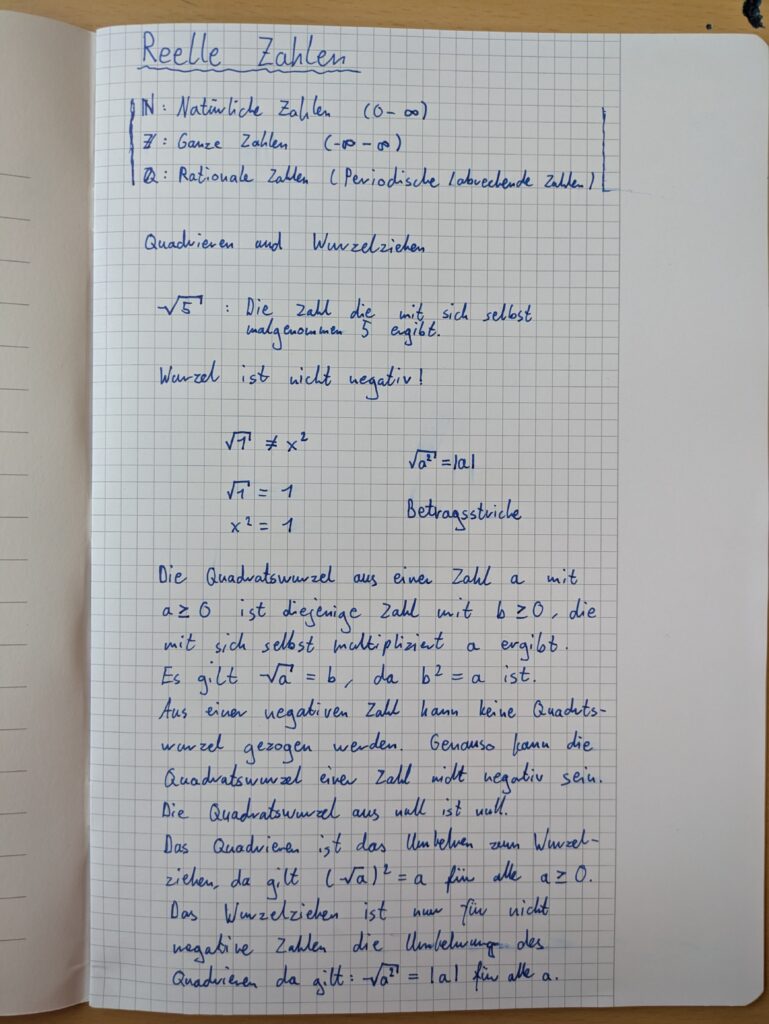 Reelle Zahlen
ℕ: Natürliche Zahlen (0 - ∞)
ℤ: Ganze Zahlen (-∞ - ∞)
ℚ: Rationale Zahlen (Periodische / abrechende Zahlen)
Quadrieren und Wurzelziehen
√5 : Die Zahl die mit sich selbst
malgenommen 5 ergibt.
Wurzel ist nicht negativ!
√1 ≠ x²
√a² = |a|
√1 = 1
Betragsstriche
x² = 1
Die Quadratswurzel aus einer Zahl a mit
a ≥ 0 ist diejenige Zahl mit b ≥ 0, die
mit sich selbst multipliziert a ergibt.
Es gilt √a = b, da b² = a ist.
Aus einer negativen Zahl kann keine Quadrts-
wurzel gezogen werden. Genauso kann die
Quadratswurzel einer Zahl nicht negativ sein.
Die Quadratswurzel aus null ist null.
Das Quadrieren ist das Umkehren zum Wurzel-
ziehen, da gilt (√a)² = a für alle a ≥ 0.
Das Wurzelziehen ist nur für nicht
negative Zahlen die Umkehrung des
Quadrieren da gilt: √a² = |a| für alle a.